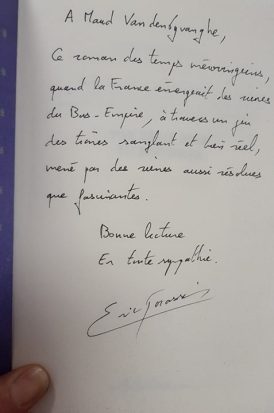 A Maud Vandenbyvanghe,
Ce roman des temps mérovingiens,
quand la France émergeait des ruines
du Bas-Empire, à travers un jeu
des trônes sanglant et bien réel,
mené par des reines aussi résolues
que fascinantes.
Bonne lecture
En toute sympathie.
Eric